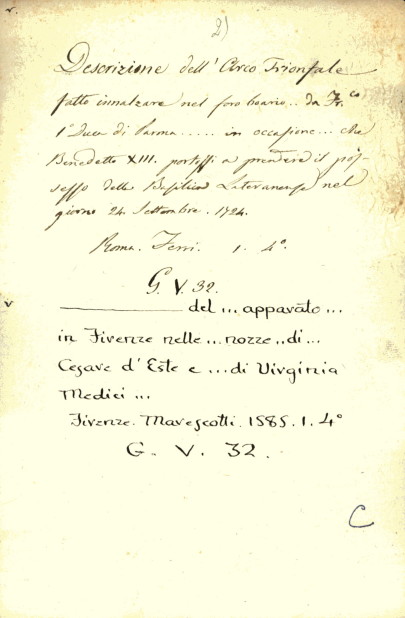 2)
Descrizione dell' Arco Trionfale
fatto innalzare nel foro boario... da Fr.co
1° Duca di Parma..... in occasione... che
Benedetto XIII. portossi a prendere il pos-
sesso della Basilica Lateranense nel
giorno 24. Settembre. 1724.
Roma. Ferri. 1. 4°.
G. V. 32.
v ———— del ... apparato ...
in Firenze nelle ... nozze .. di ...
Cesare d' Este e ... di Virginia
Medici ...
Firenze. Marescotti. 1585. 1. 4°
G. V. 32.
C